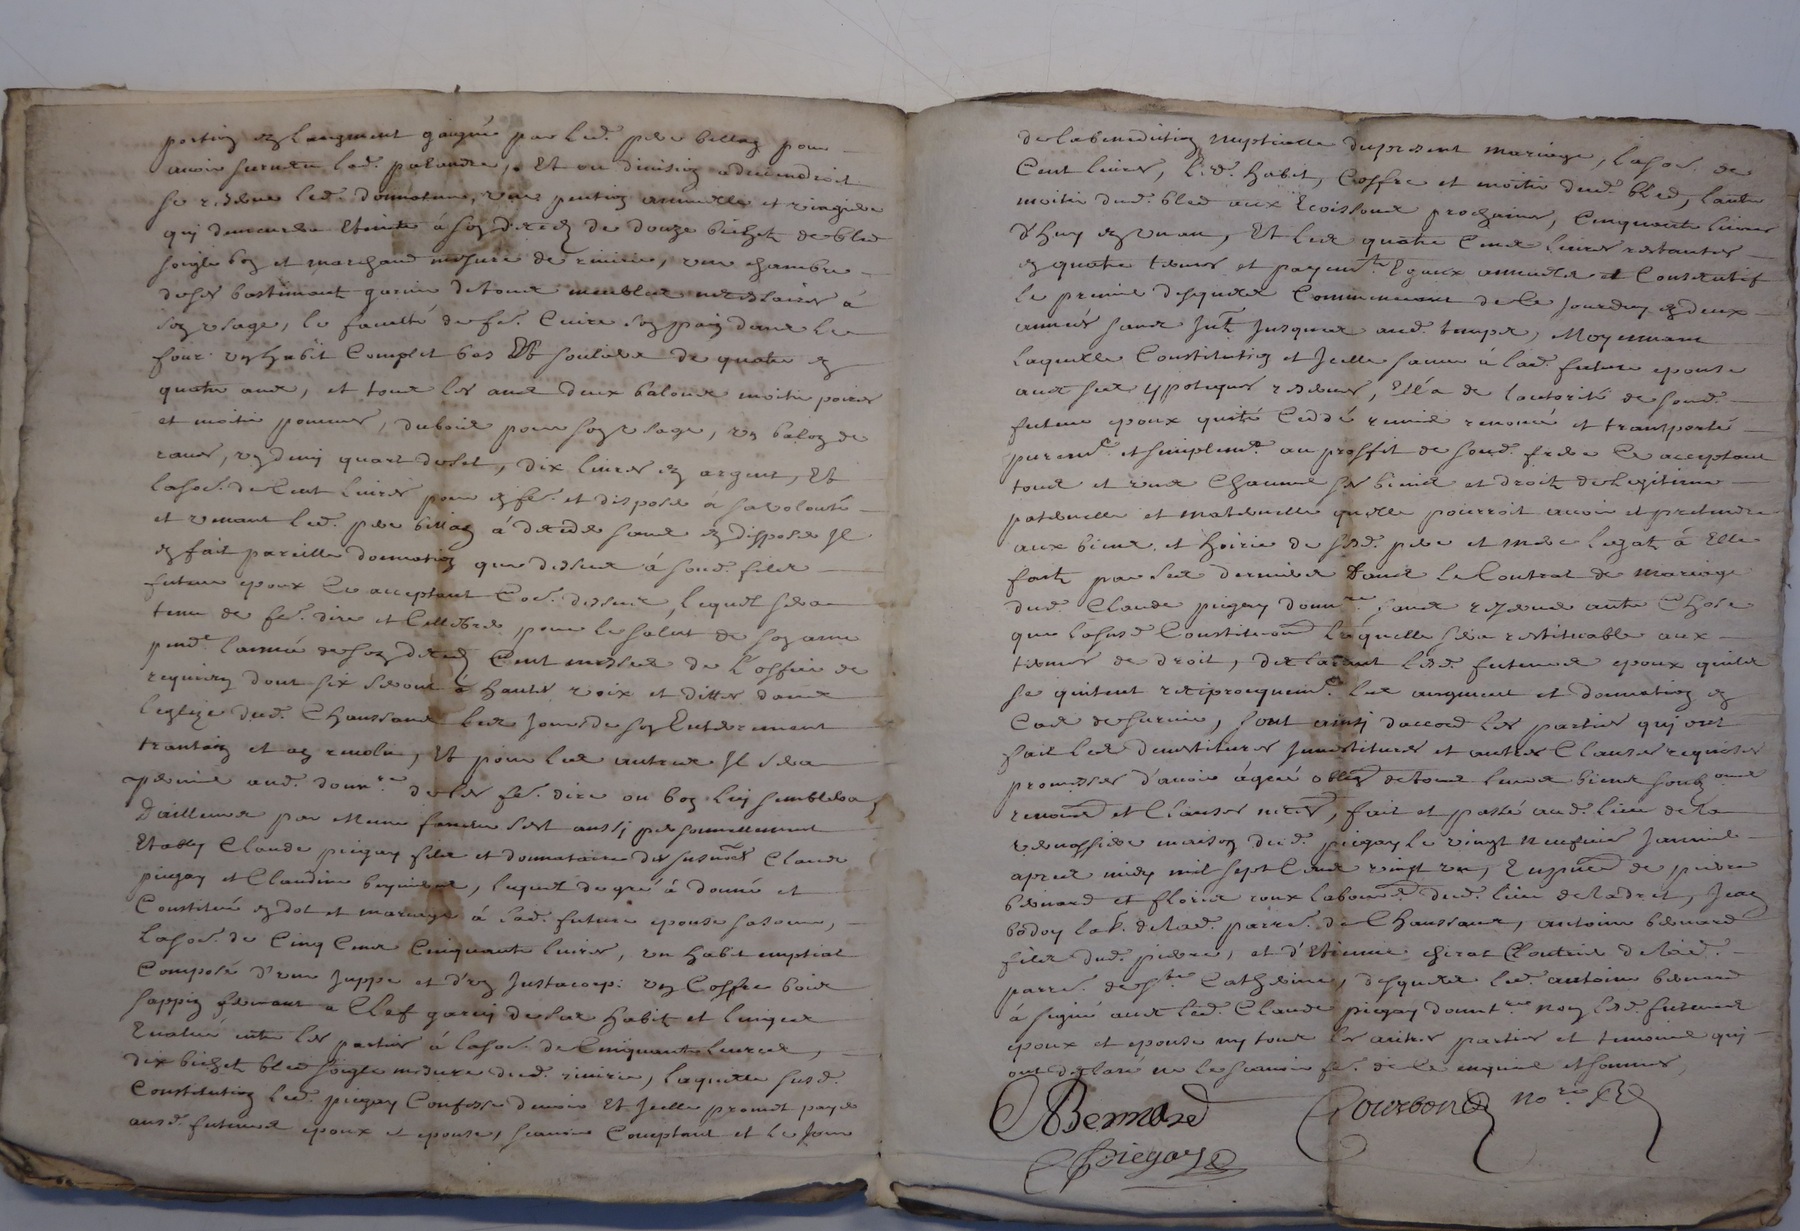 portion et laugment gaigné par led. pere billon pour
avoir survecu lad. palandre, Et ou division adviendroit
se reserve led. donnateur, une pention annuelle et viagere
qui demeurera Eteinte à son deces de douze bichets de bled
soigle bon et marchand mesure de riverie, une chambre
de ses bastiments garnie de tous meubles necessaires à
son usage, la faculté de fe. Cuire son pain dans le
four un habit Complet bas Et souliers de quatre en
quatre ans, et tous les ans deux balons moitié poires
et moitié pommes, du bois pour son usage, un balon de
raves, un demy quart de sel, dix livres en argent, Et
la so. de Cent Livres pour en fe. et disposer à sa volonté
et venant led. pere billon à deceder sans en disposer Il
en fait pareille donnation que dessus à sond. fils
futur epoux Ce acceptant Co. dessus, lequel sera
tenu de fe. dire et Cellebrer pour le salut de son ame
pend. lannée de son deces Cent messes de l'office de
requiem dont six seront à hautes voix et dittes dans
leglize dud. Chaussant les jours de son Enterrement
trantain et an revolu, Et pour les autres Il sera
permis aud. donn.re de les fe. dire ou bon luy semblera,
D'ailleurs par Meme sest aussi personnellement
Etably Claude piegay fils et donnataire des susnes Claude
piegay et Claudine, lequel de gré à donné et
Constitué en dot et mariage à lad. future epouse sa soeur,
la so. de Cinq Cens Cinquante livres, un habit nuptial
Composé d'une Juppe et d'un Justacorp. un Coffre bois
sappin fermant a Clef garny de ses habits et linges
Evalué entre les parties à la so. de Cinquante Livres,
dix bichets bled soigle mesure dud. riverie, laquelle susd.
Constitution led. piegay Confesse devoir Et Icelle promet payer
ausd. futurs epoux et epouse, scavoir Comptant et le Jour
de la benediction nuptialle du present mariage, la so. de
Cent livres, l. d. habit, Coffre et moitié dud. bled, lautre
moitié dud. bled aux Ecoissoux prochains, Cinquante livres
d'huy en un an, Et les quatre Cens livres restantes
en quatre termes et payem.ts Egaux annuels et Consecutifs
le premier desquels Commencera de ce jourdhuy en deux
années sans Int. Jusques aud. temps, Moyennant
laquelle Constitution et Icelle sauve à lad. future epouse
avec ses ypoteques reservées, Ella de lautorité de sond.
futur epoux quité Ceddé remis renoncé et transporté
purem.t et simplem.t au proffit de sond. frere Ce acceptant
tous et uns Chacuns ses biens et droits de legitime
paternelle et maternelle quelle pourroit avoir et pretendre
aux biens et hoirie de sesd. pere et mere legats à Elle
faits par ses derniers dans le Contrat de mariage
dud. Claude piegay donn.re sans reserve autre Chose
que lasusd. Constitution laquelle sera restituable aux
termes de droit, declarant lesd. futurs epoux quils
se quitent reciproquem.t les augment et donnation en
Cas de survie, sont ainsi daccord les parties qui ont
fait les devestitures Investitures et autres Clauses requises
promesses d'avoir àgréé oblig. de tous leurs biens soub.ons
renon.on et Clauses nec.res, fait et passé aud. lieu de la
maison dud. piegay le vingt neufvieme Janvier
apres midy mil sept Cens vingt un, En pnce de pierre
bernard et floris roux labour.s dud. lieu de ladret, Jean
bodoy lab. de lad. parre. de Chaussant, antoine bernard
fils dud. pierre, et d'Etienne chirat Cloutrier de lad.
parre. de S.te Catherine, desquels led. antoine bernard
à signé avec led. Claude piegay donnt.re non lesd. futurs
epoux et epouse ny tous les autres parties et temoins qui
ont declaré ne le scavoir fe. de ce enquis et sommés,
ABernard Courbon no.re R
CPiegay